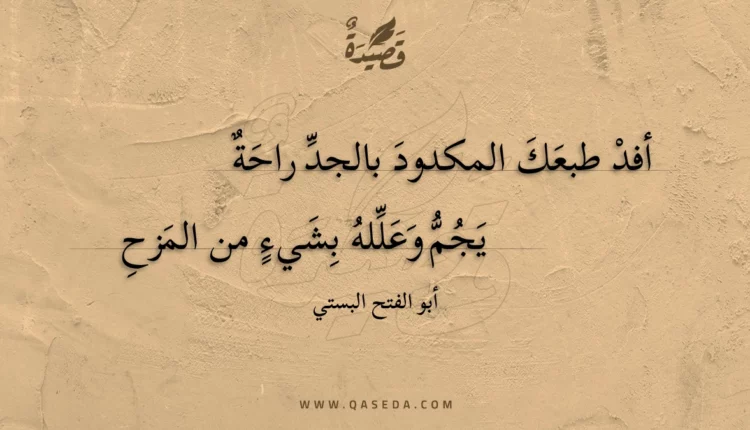 قَصِيْدَةٌ
أفدْ طبعَكَ المكدودَ بالجدِّ راحَةٌ
يَجُمُّ وَعَلِّلهُ بِشَيءٍ من المَزحِ
أبو الفتح البستي
WWW.QASEDA.COM